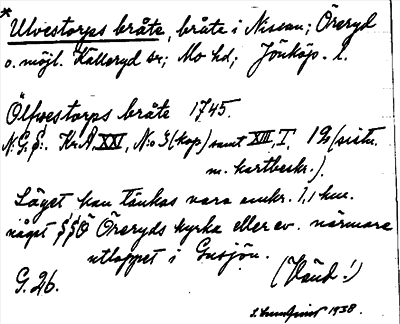 * Ulvestorps bråte, bråte i Nissan; Öreryd
o. möjl. Källeryd sr; Mo hd; Jönköp. l.
Ölfvestorps bråte 1745.
N.G.S:. Kr.A XXI, N:o 3 (kop) samt XIII, I, 12 (sistn.
m. kartbeskr.).
Läget kan tänkas vara omkr. 1,1 km.
något SSÖ Öreryds kyrka eller ev. närmare
utloppet i Gussjön.
G. 26. (Vänd!)
1938.